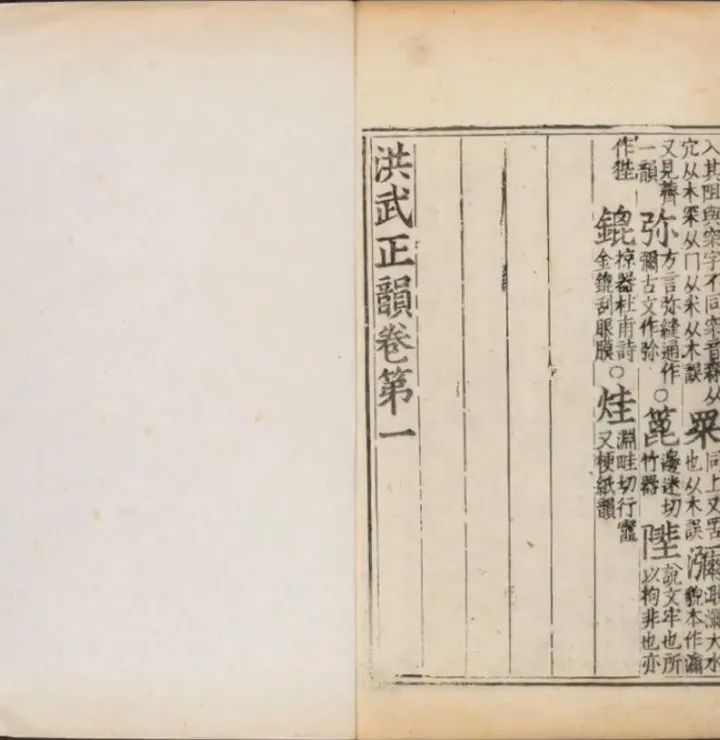 入其阻與冞字不同冞音森从穴从木冞从冂从米从木誤 冞 同上又罟也从木誤 瀰 瀰大水貌本作濔
又見薺一韻 弥 方言弥縫通作彌古文作弥 ○ 篦 邊迷切竹器 陛 說文牢也所以拘非也亦
作狴 鎞 掠器杜甫詩金鎞刮眼膜 ○ 烓 淵畦切行竈又梗紙韻
洪武正韻卷第一